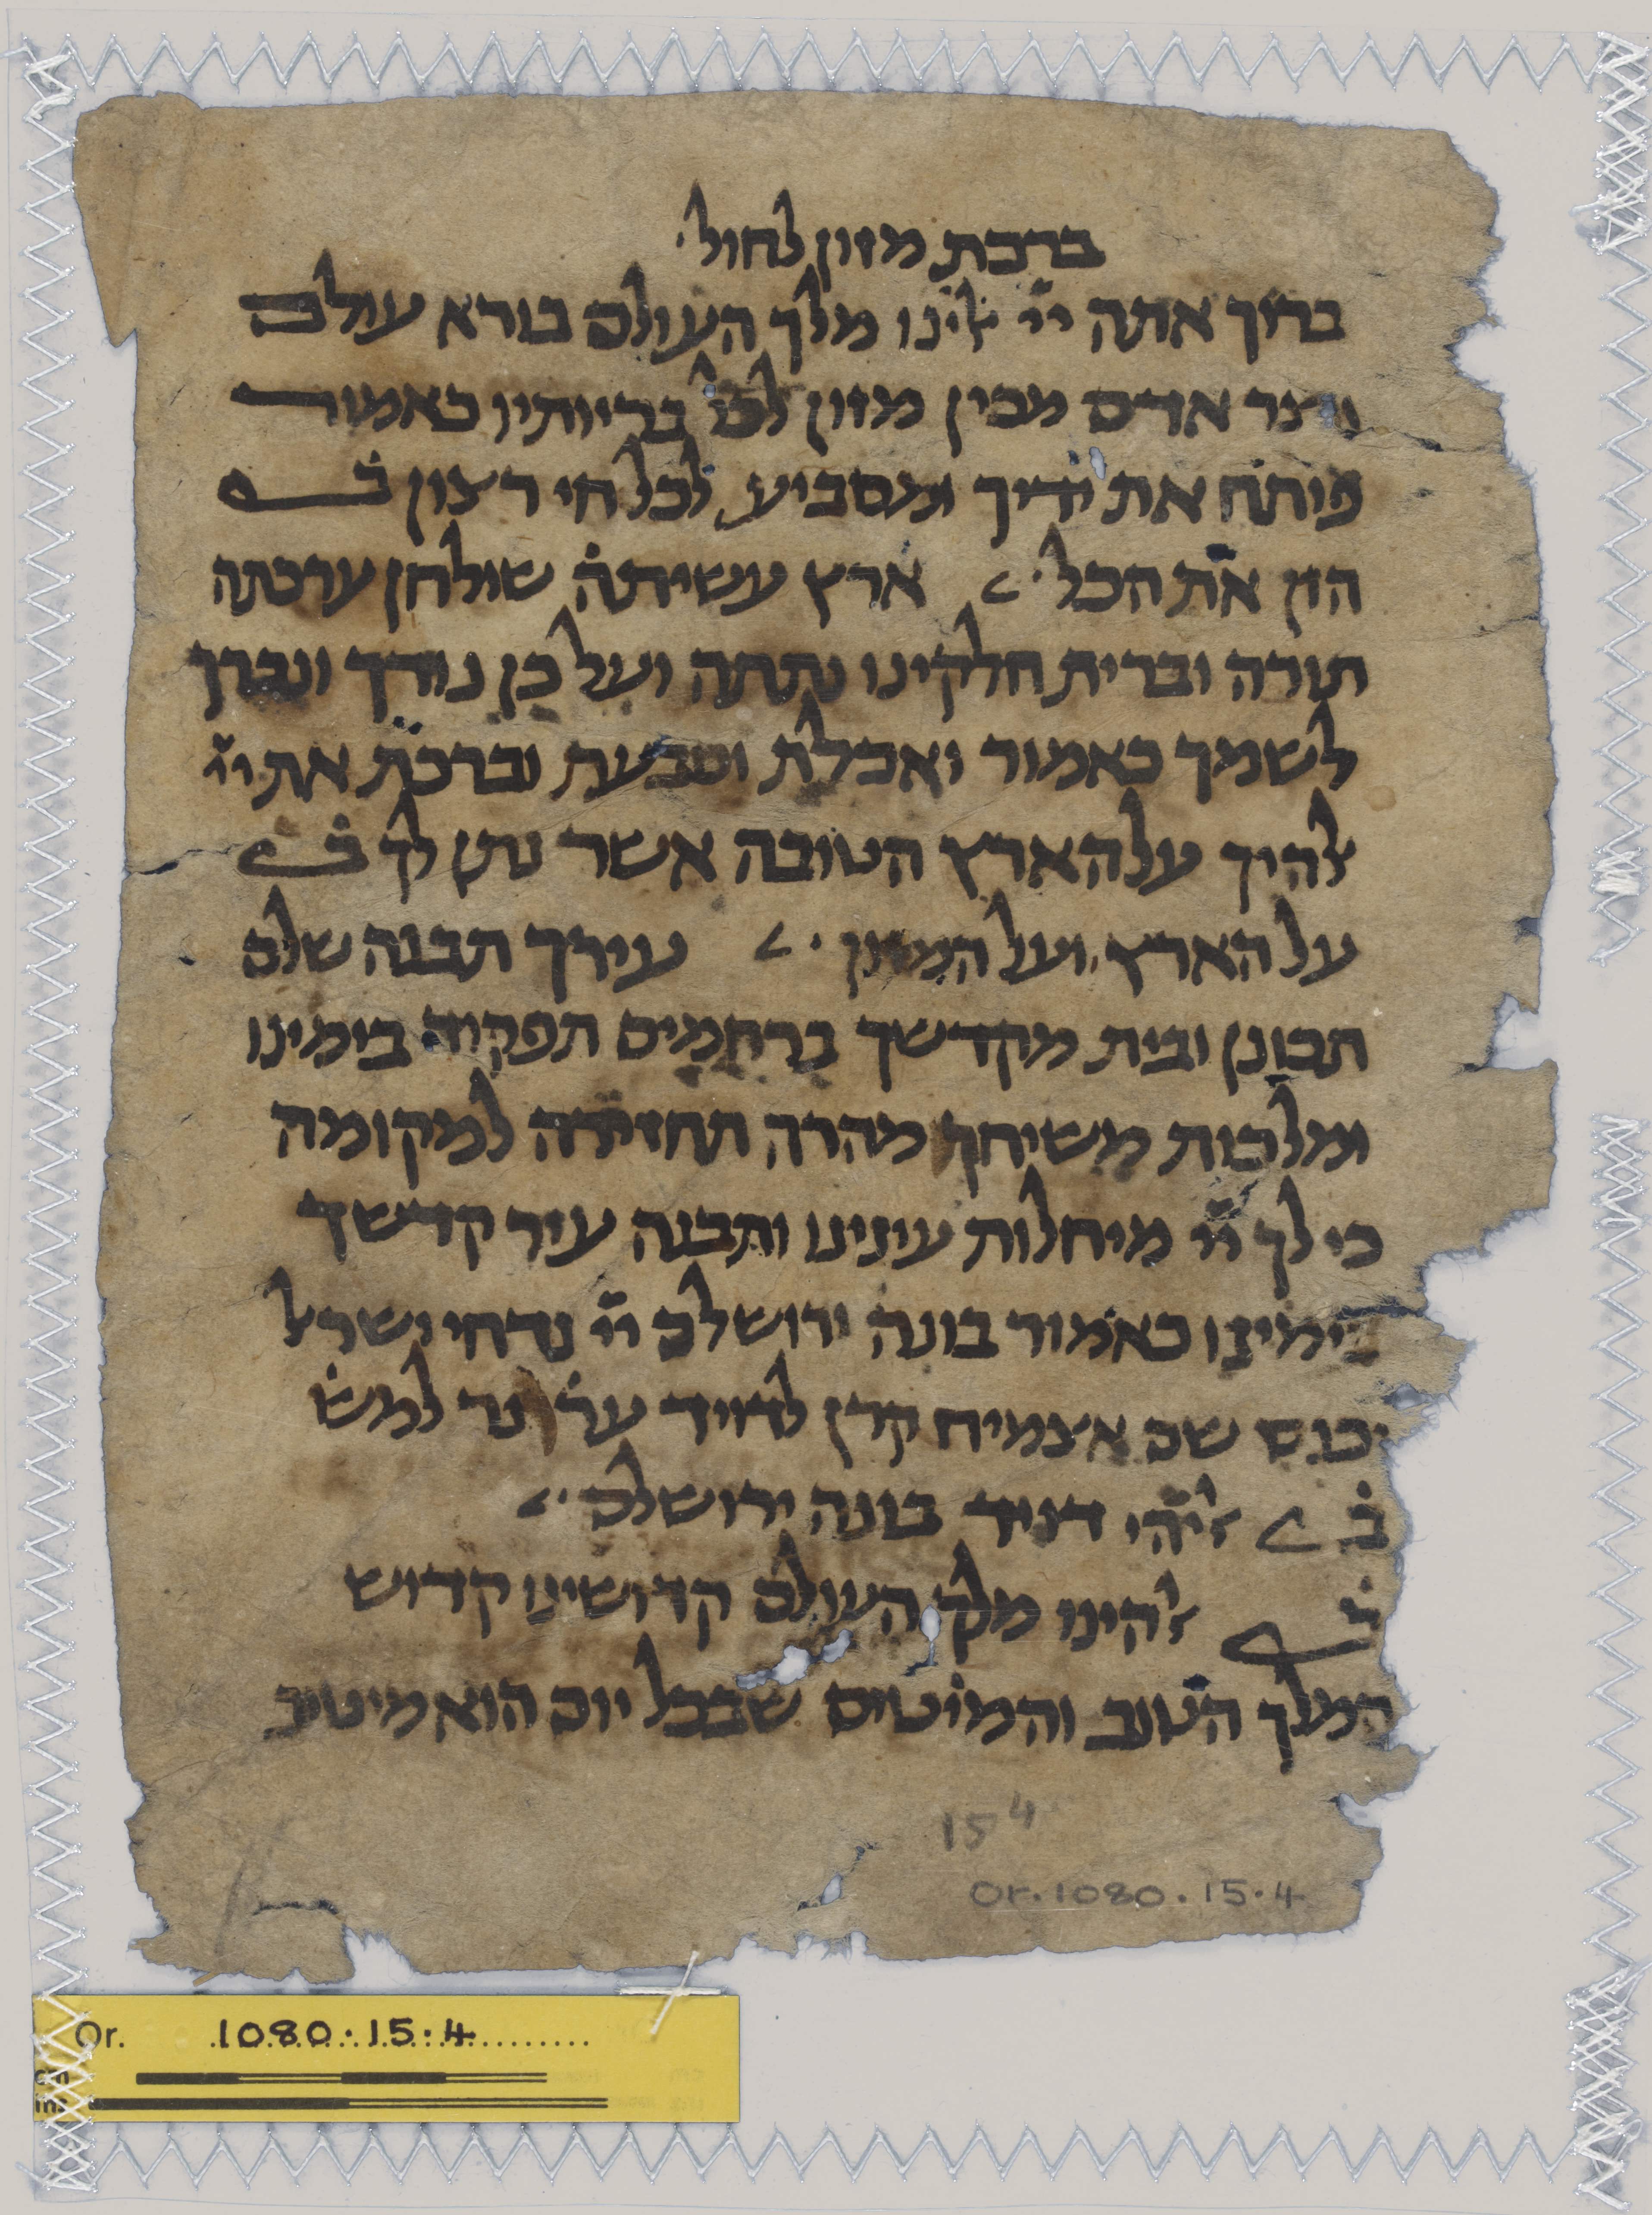 ברכת מזון לחול·
ברוך אתה יי אלינו מלך העולם בורא עולם
יוצר אדם מכין מזון לכל בריותיו כאמור
פותח את ידיך ומסביע לכל חי רצון ב
הזן את הכל· ארץ עשיתה שולחן ערכתה
תורה וברית חלקינו נתתה ועל כן נודך ונברך
לשמך כאמור ואכלת ושבעת וברכת את יי
אלהיך על הארץ הטובה אשר נתן לך ב
על הארץ ועל המזון · עירך תבנה שלם
תכונן ובית מקדשך ברחמים תפקוד בימינו
ומלכות משיחך מהרה תחזירה למקומה
כי לך יי מיחלות עינינו ותבנה עיר קדשך
בימינו כאמור בונה ירושלם יי נדחי ישראל
יכנס שם אצמיח קרן לדויד ער נר למש
ב אלהי דויד בונה ירושלם·
ב אלהינו מלך העולם קדושינו קדוש
המלך הטוב והמיטיב שבכל יום הוא מיטיב
15 4
Or. 1080 . 15 . 4
Or. 1080 . 15 . 4
cm
in